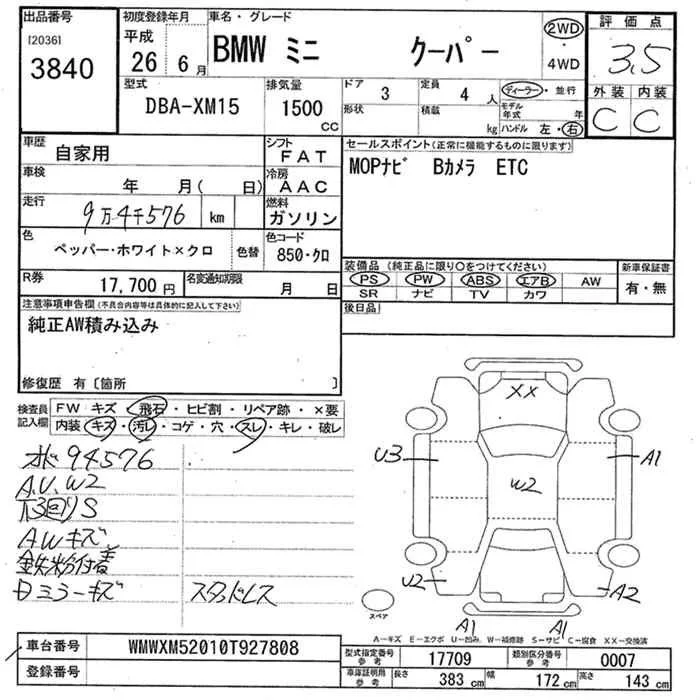 出品番号 初度登録年月 車名・グレード 評価点
[2036] 3840
平成 26 6月
BMW ミニ クーパー
2WD
・
4WD
3.5
型式 DBA-XM15
排気量 1500 CC
ドア 3
定員 4 人
形状 積載 kg
ディーラー・並行
モデル年式 年
ハンドル 左・右
外装 内装
C C
車歴 自家用
シフト FAT
車検 年 月( 日)
冷房 AAC
走行 9万4千576 km
燃料 ガソリン
色 ペッパー・ホワイト×クロ 色替
色コード 850・クロ
R券 17,700円 名変通知期限 月 日
セールスポイント(正常に機能するものに限ります)
MOPナビ Bカメラ ETC
装備品(純正品に限り○をつけてください) 新車保証書
PS PW ABS エアB AW 有・無
SR ナビ TV カワ
後日品
注意事項申告欄(不具合内容等は具体的に記入して下さい)
純正AW積み込み
修復歴 有〔箇所 〕
検査員記入欄
FW キズ・飛石・ヒビ割・リペア跡・×要
内装・キズ・汚レ・コゲ・穴・スレ・キレ・破レ
オド94576
A.U.W2
AWキズ
鉄粉付着
ミラーキズ スタッドレス
XX
U3 A1
W2
U2 A2
A1 A1
スペア
A―キズ E―エクボ U―凹み W―補修跡 S―サビ C―腐食 XX―交換済
車台番号 WMWXM52010T927808
登録番号
型式指定番号 参考 17709 類別区分番号 参考 0007
車庫証明用 参考 長さ 383 cm 幅 172 cm 高さ 143 cm